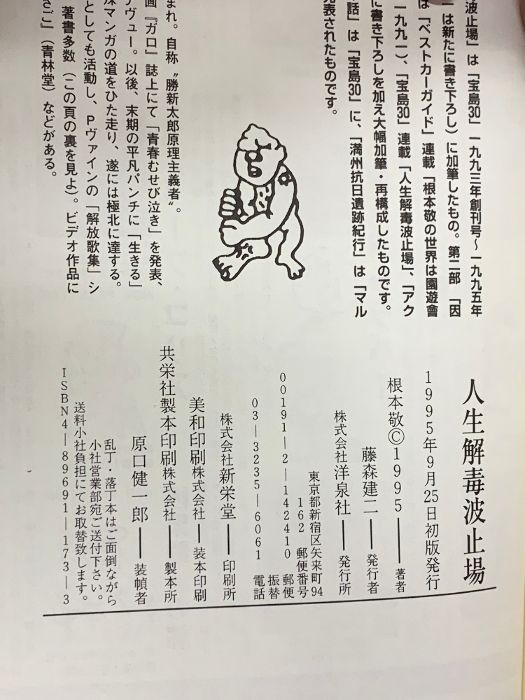 波止場」は「宝島30」一九九三年創刊号〜一九九五年
」は新たに書き下ろし)に加筆したもの。第二部 「因
は「ベストカーガイド」連載「根本敬の世界は園遊會
一九九一)、「宝島30」連載「人生解毒波止場」、「アク
に書き下ろしを加え大幅加筆・再構成したものです。
話」は「宝島30」に、「満州抗日遺跡紀行」は「マル
発表されたものです。
まれ。自称〝勝新太郎原理主義者〟。
画『ガロ』誌上にて「青春むせび泣き」を発表、
デヴュー。以後、末期の平凡パンチに「生きる」
殊マンガの道をひた走り、遂には極北に達する。
としても活動し、Pヴァインの「解放歌集」シ
著書多数(この頁の裏を見よ)。ビデオ作品に
さご」(青林堂)などがある。
人生解毒波止場
1995年9月25日初版発行
根本敬©1995——著者
藤森建二——発行者
株式会社洋泉社——発行所
東京都新宿区矢来町94
162 郵便番号
00191—2—142410 郵便振替
03—3235—6061 電話
株式会社新栄堂——印刷所
美和印刷株式会社——装本印刷
共栄社製本印刷株式会社——製本所
原口健一郎——装幀者
乱丁・落丁本はご面倒ながら
小社営業部宛ご送付下さい。
送料小社負担にてお取替致します。
ISBN4—89691—173—3